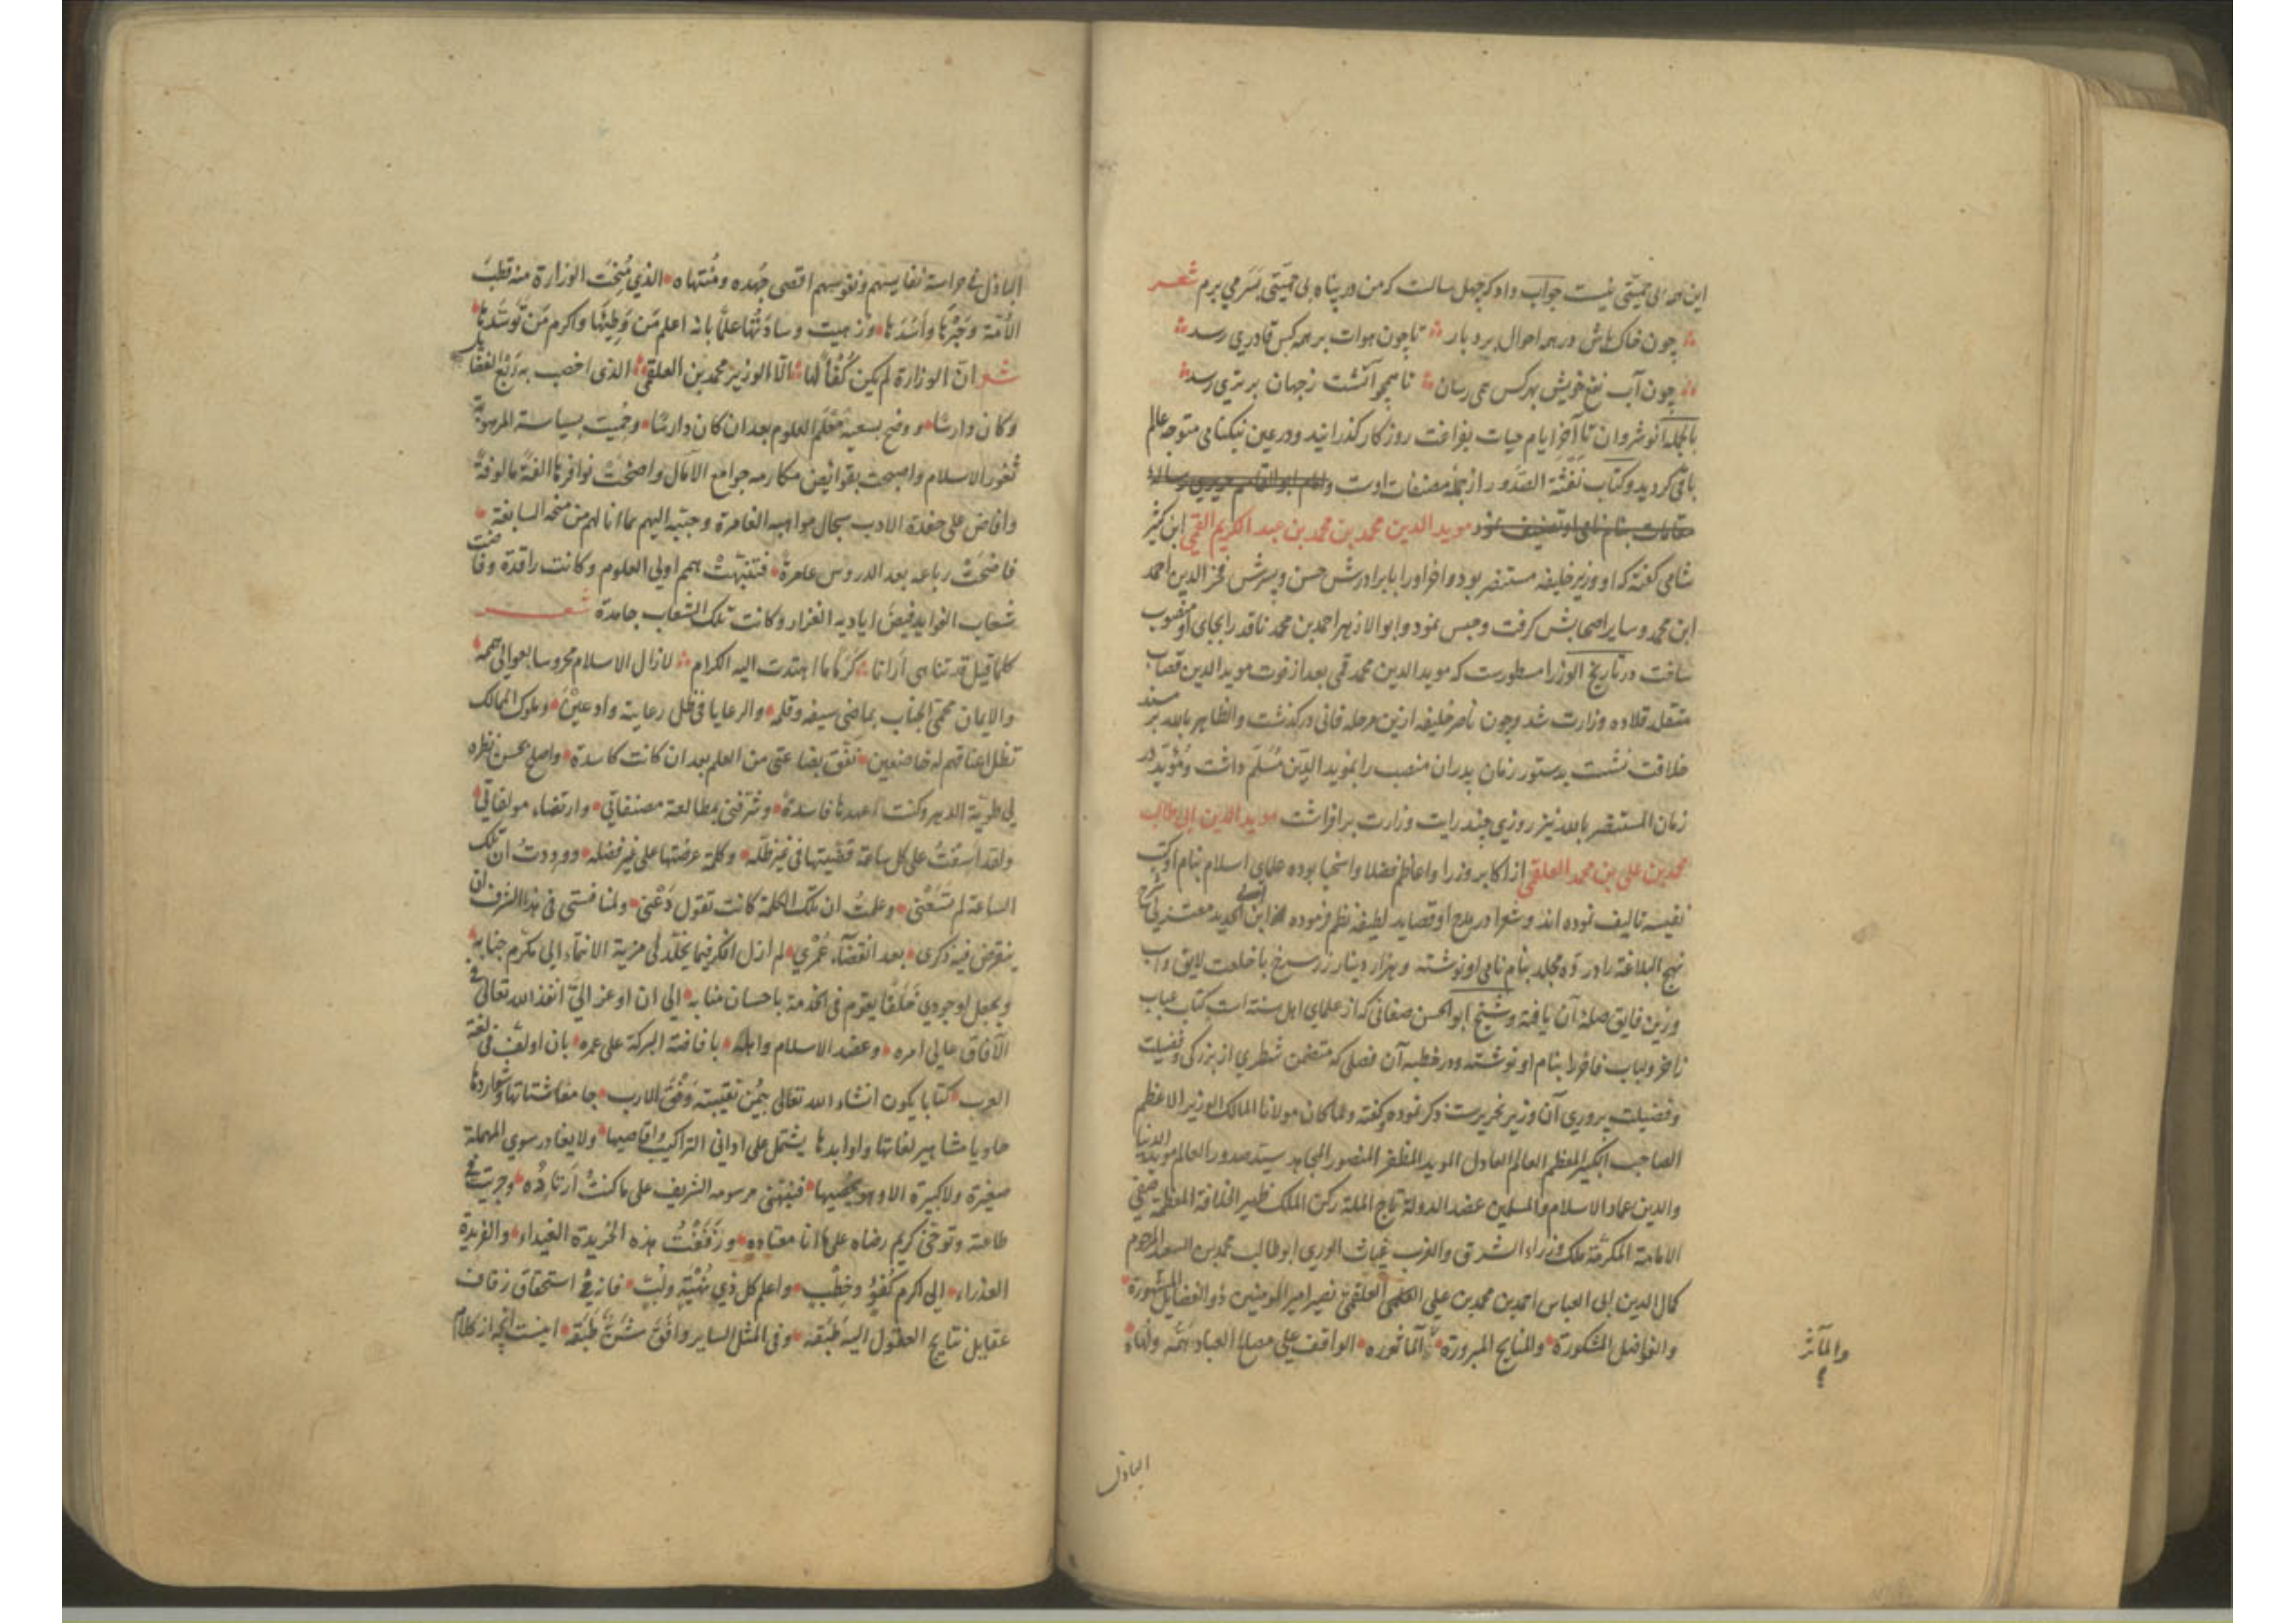 این همه بی حمیتی نیست جواب داد که چهل سالست که من در پناه بی حمیتی بسر می برم شعر
چون خاک باش در همه احوال بردبار تا چون هوات بر همه کس قادری رسد
چون آب نفع خویش بهر کس همی رسان تا همچو آتشت ز جهان برتری رسد
بالجمله انوشروان تا آخر ایام حیات بفراغت روزکار کذرانید و در عین نیکنامی متوجه عالم
باقی کردید و کتاب نفثة الصدور از جمله مصنفات اوست و امام ابو القاسم حریری رساله
مقامات بنام نامی او تصنیف نمود موید الدین محمد بن محمد بن عبد الکریم القمی ابن کثیر
شامی کفته که او وزیر خلیفه مستنصر بود و اخر او را با برادرش حسن و پسرش فخر الدین احمد
ابن محمد و سایر اصحابش کرفت و حبس نمود و ابو الازهر احمد بن محمد ناقد را بجای او منصوب
ساخت در تاریخ الوزرا مسطورست که موید الدین محمد قمی بعد از فوت موید الدین قصاب
متقلد قلاده وزارت شد و چون ناصر خلیفه ازین مرحله فانی درکذشت و الظاهر بالله بر مسند
خلافت نشست بدستور زمان پدر ان منصب را بموید الدین مسلم داشت و موید در
زمان المستنصر بالله نیز روزی چند رایت وزارت برافراشت موید الدین ابی طالب
محمد بن علی بن محمد العلقمی از اکابر وزرا و اعاظم فضلا و اسخیا بوده علمای اسلام بنام او کتب
نفیسه تالیف نموده اند و شعرا در مدح او قصاید لطیفه نظم فرموده ابن ابی الحدید معتزلی شرح
نهج البلاغه را در ده مجلد بنام نامی او نوشته و هزار دینار زر سرخ با خلعت لایق و اسب
و زین فایق صله آن یافته و شیخ ابو الحسن صغانی که از علمای اهل سنة است کتاب عباب
زاخر و لباب فاخر را بنام او نوشته و در خطبه آن فصلی که متضمن شطری از بزرکی و فضیلت
و فضیلت پروری آن وزیر نحریرست ذکر نموده و کفته و لما کان مولانا المالک الوزیر الاعظم
الصاحب الکبیر المعظم العالم العادل الموید المظفر المنصور المجاهد سید صدور العالم موید الدنیا
والدین عماد الاسلام و المسلمین عضد الدولة تاج الملة رکن الملک ظهیر الخلافة المعظمة صفی
الامامة المکرمة ملک وزراء الشرق والغرب غیاث الوری ابو طالب محمد بن السعید المرحوم
کمال الدین ابی العباس احمد بن محمد بن علی العلقمی نصیر امیر المومنین ذو الفضایل المشهورة
والفواضل المشکورة والمنایح المبرورة الماثوره الواقف علی مصالح العباد همه و
والمآثر
الباذل
الباذل فی حراسة نفایسهم و نفوسهم اقصی جهده ومنتهاه الذی مُنِحَت الوزارة منه قطب
الائمة وخیرها واسدها وزهیت وسادتها علما بانه اعلم من وطیها واکرم من توسدها
شعر ان الوزارة لم یکن کفأ لها الا الوزیر محمد بن العلقمی الذی اخصب به ربع الفضایل
وکان دارسا و وضح بسعیه معلم العلوم بعد ان کان دارسا وحمیت بسیاسته المرهوبة
ثغور الاسلام واصبحت بقوانین مکارمه جوامع الآمال واضحت نوافرها آلفة مالوفة
وافاض علی حفدة الادب سجال مواهبه الغامرة وحببه الیهم بما انالهم من منحه السابغة
فاضحت رباعه بعد الدروس عامرة فتنبهت همم اولی العلوم وکانت راقدة وفاضت
شعاب الفواید فیض ایادیه الغزار وکانت تلک الشعاب جامدة شعر
کلما قیل قد تناهی ارانا کرما ما اهتدت الیه الکرام لا زال الاسلام محروسا بعوالی هممه
والایمان محمی الجناب بماضی سیفه وقلمه والرعایا فی ظل رعایته وادعین وملوک الممالک
تظل اعناقهم له خاضعین نفق بضاعتی من العلم بعد ان کانت کاسدة واصلح بحسن نظره
لی طویة الدهر وکنت اعهدها فاسدة وشرفنی بمطالعة مصنفاتی وارتضاء مولفاتی
ولقد اسفت علی کل ساعة قضیتها فی غیر ظله وکلمة عرضتها علی غیر فضله ووددت ان تلک
الساعة لم تسعنی وعلمت ان تلک الکلمة کانت تقول دعنی ولمنافستی فی هذا الشرف ان
ینقرض فیه ذکری بعد انقضاء عمری لم ازل افکر فیما یخلد لی مزیة الانتماء الی مکرم جنابه
ویجعل لوجودی خلفا یقوم فی الخدمة باحسان منابه الی ان اوعز الی انفذ الله تعالی فی
الآفاق عالی امره وعضد الاسلام واهله بافاضة البرکة علی عمره بان اولف فی لغة
العرب کتابا یکون انشاء الله تعالی بیمن نقیبته وفق الارب جامعا شتاتها وشواردها
حاویا مشاهیر لغاتها واوابدها یشتمل علی ادانی التراکیب واقاصیها ولا یغادر سوی المهملة
صغیرة ولا کبیرة الا وهو یحصیها فنبهنی مرسومه الشریف علی ما کنت ارتاده وجریت فی
طاعته وتوخی کریم رضاه علی ما انا معتاده وزففت هذه الخریدة الغیداء والفریدة
العذراء الی اکرم کفو وخطب واعلم کل ذی نهیة ولب فانه فی استحقاق زفاف
عقایل نتایج العقول الیه طبقه وفی المثل السایر وافق شن طبقه اینست انچه از کلام